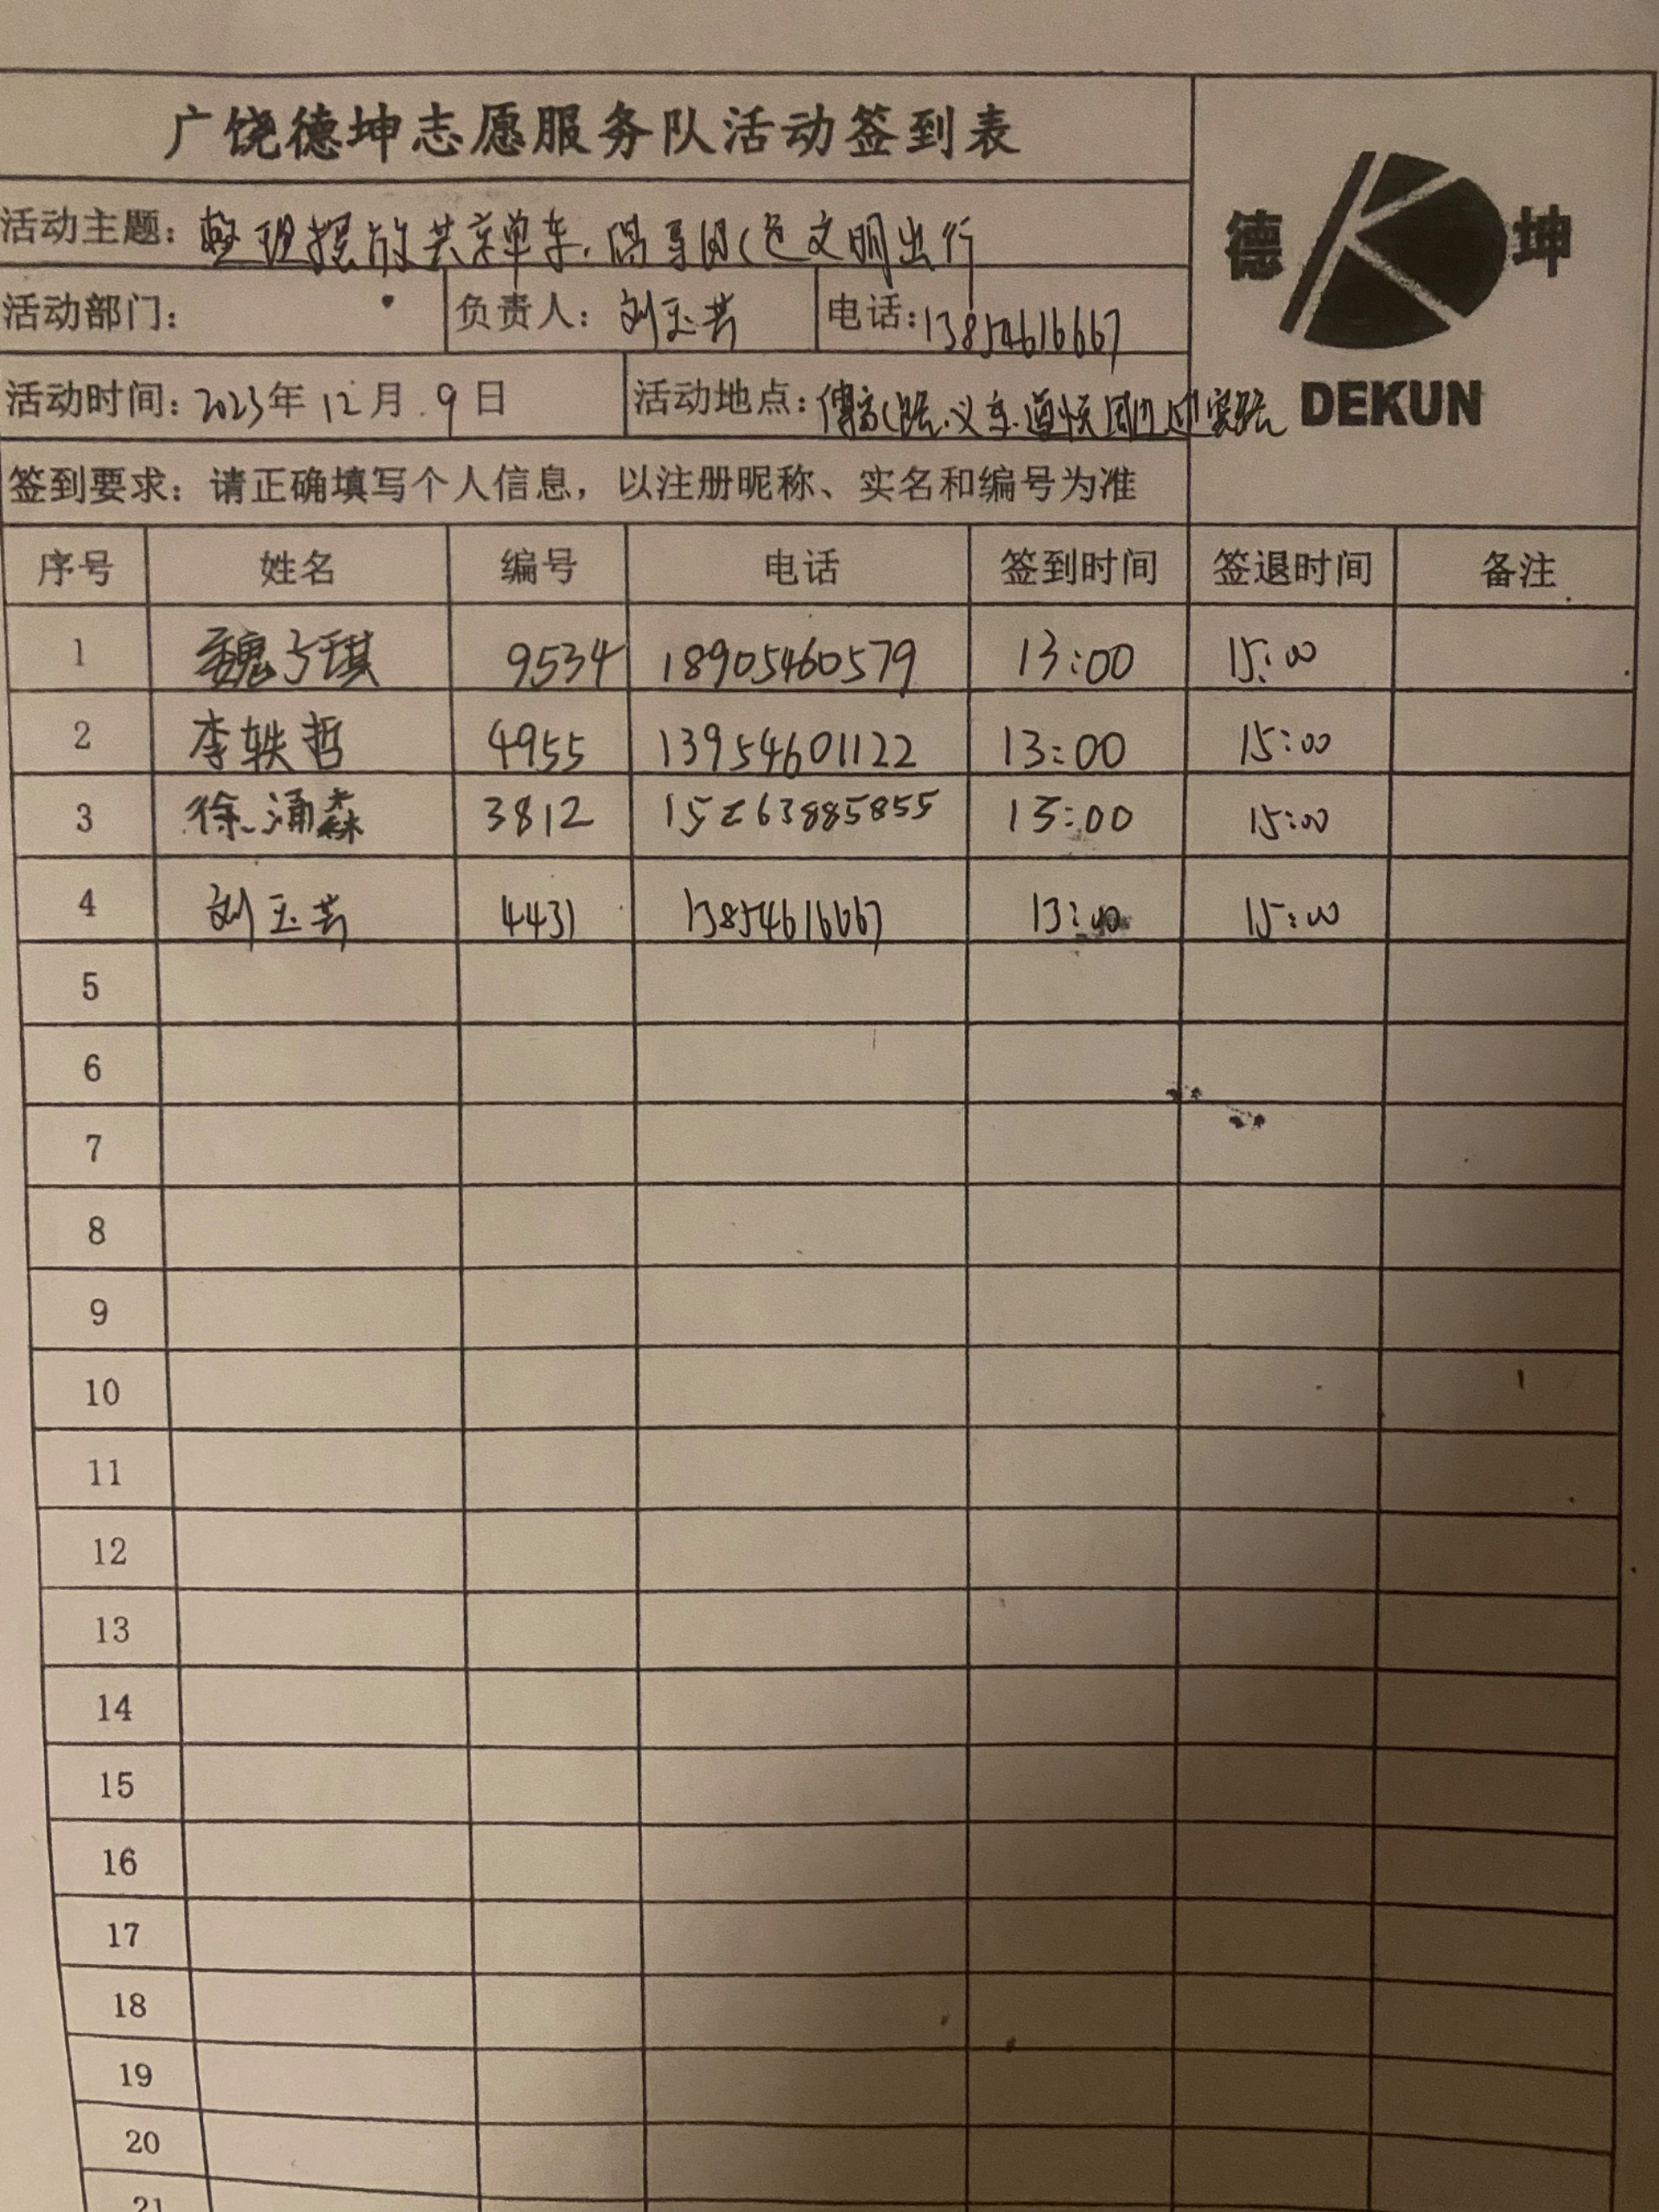 广饶德坤志愿服务队活动签到表
活动主题：整理摆放共享单车.倡导绿色文明出行
德 坤
活动部门： 负责人：刘玉芸 电话：13854616667
活动时间：2023年12月9日 活动地点：
DEKUN
签到要求：请正确填写个人信息，以注册昵称、实名和编号为准
序号 姓名 编号 电话 签到时间 签退时间 备注
1 魏子琪 9534 18905460579 13:00 15:00
2 李轶哲 4955 13954601122 13:00 15:00
3 徐涌森 3812 15263885855 13:00 15:00
4 刘玉芸 4431 13854616667 13:00 15:00
5
6
7
8
9
10
11
12
13
14
15
16
17
18
19
20
21